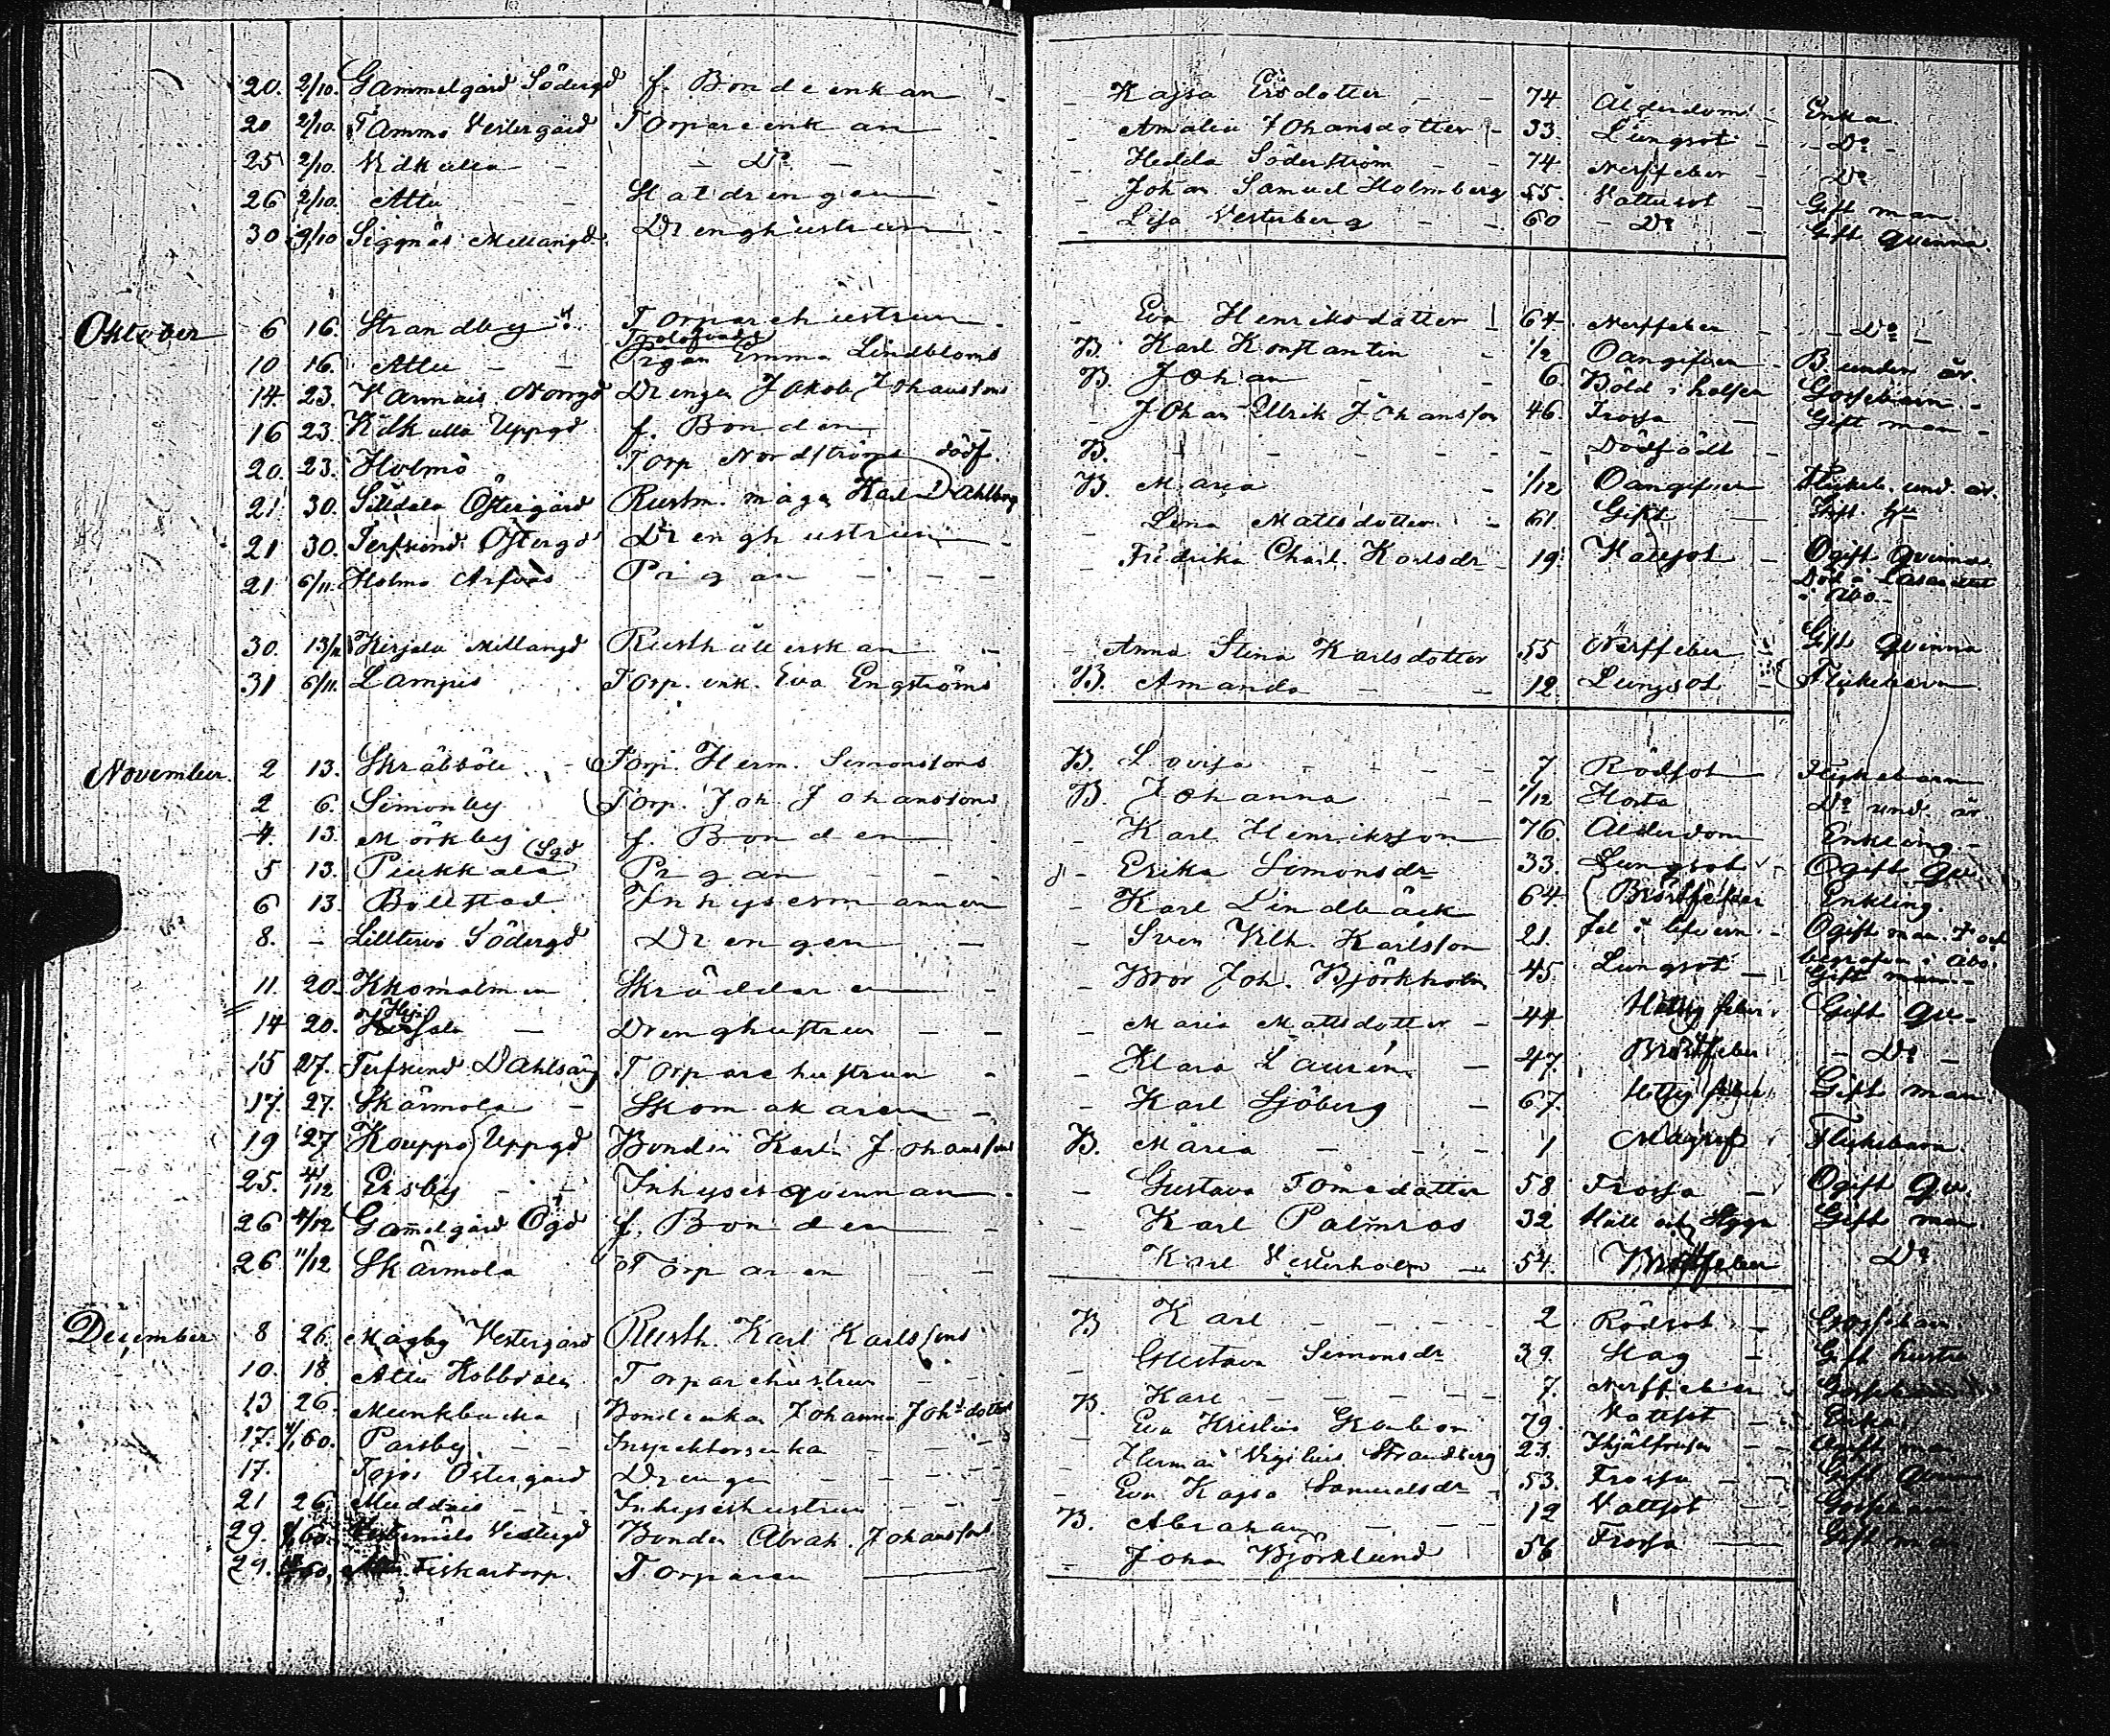 20. 2/10. Gammelgård Södergd f. Bondeenkan - - Kajsa Ersdotter - - 74 Ålderdom - Enka
20 2/10. Tammo Vestergård Torpareenkan - - Amalia Johansdotter - 33. Lungsot - - Do -
25 2/10. Vidkulla - - Do - - Hedda Söderström - - 74 Nerffeber - Do
26 2/10. Attu - - Statdrengen - - Johan Samuel Holmberg 55. Vattusot - Gift man
30 9/10 Siggnäs Mellangd. Drenghustrun - - Lisa Vesterberg - - 60 - Do - Gift qvinna.
Oktober 6 16. Strandby Torparehustrun - - Eva Henriksdotter 64 Nerffeber - - Do -
10 16. Attu - - Pigan Emma Lindbloms B. Karl Konstantin - 1/2 Oangifven - B. under år.
14. 23. Varmais Norrgd Drengen Jakob Johanssons B. Johan - - 6. Böld i halsen Gossebarn -
16 23. Kilkulla Uppgd f. Bonden - Johan Ullrik Johansson 46. Frossa - Gift man -
20. 23. Holmo Torp Nordströms dödf. B. - - - - - Dödfödt -
21 30. Silldala Östergård Rustm. måge Karl Dahlberg B. Maria - 1/12 Oangifven Flickeb. und. år.
21 30. Terfsund Östergd Drenghustrun - Lena Mattsdotter - 61. Gikt -
21 6/11. Holmo Arfvas Pigan - - - - Fredrika Charl. Karlsdr 19. - Ogift qvinna.
Död å Lasarettet
i Åbo. -
30. 13/11 Kirjala Mellangd Rusthållerskan - - Anna Stina Karlsdotter 55 Nerffeber - Gift qvinna
31 6/11. Lampis Torp. enk. Eva Engströms B. Amanda - - 12. Lungsot - Flickebarn.
November. 2 13. Skräbböle - Torp. Herm. Simonssons B. Lovisa - - - - 7 Rödsot Flickebarn
2 6. Simonby Torp. Joh. Johanssons B. Johanna - - 1/12 Hosta Do und. år.
4. 13. Mörkby f. Bonden - Karl Henriksson 76. Ålderdom Enkling. -
5 13. Piukkala Sgd Pigan - - - - Erika Simonsdr 33. Lungsot - Ogift qv.
6 13. Böllstad Inhysesmannen - Karl Lindbäck 64. Bröstfeber Enkling.
8. - Lilltervo Södergd Drengen - - Sven Vilh. Karlsson 21. fel i lefvern - Ogift man. Död och
begrafven i Åbo.
11. 20. Kyrkoholmen Skräddaren - - Bror Joh. Björkholm 45. Lungsot - Gift man. -
14 20. - Drenghustrun - - - Maria Mattsdotter - 44 Hettig feber Gift qv. -
15 27. Terfsund Dahlsäng Torparehustrun - - Klara Laurén - 47. Bröstfeber - Do -
17. 27. Skärmola - Skomakaren - - Karl Sjöberg - 67. Hettig feber Gift man
19 27 Kouppo Uppgd Bonden Karl Johanssons B. Maria - - - 1 Flickebarn.
25. 4/12 Ersby - - Inhysesqvinnan - - Gustava Tomedotter 58 Frossa - Ogift qv.
26 4/12 Gamelgård Ögd f. Bonden - - Karl Palmros 32 Håll och Stygn Gift man
26 11/12 Skärmola Torparen - - Karl Vesterholm - 54. Bröstfeber Do
December 8 26. Mågby Vestergård Rusth. Karl Karlssons B Karl - - - - 2 Rödsot - Gossebarn
10. 18. Attu Kobbdalen Torparehustrun - - - Gustava Simonsdr 39. Slag - Gift hustru
13 26. Munkbacka Bondenkan Johanna Johsdotters B. Karl - - - - 7. Nerffeber Gossebarn
17. 1/1 60. Parsby - - Inspektorsenka - - - - Eva Kristina 79. Vattsot - Enka
17. Tojos Östergård Drengen - - - - Herman Vigilius Strandberg 23. - - Ogift man
21 26. Muddais - - Inhyseshustrun - - - - Eva Kajsa Samuelsdr - 53. Frossa - - Gift qvinna
29. 1/1 60. Vestergd Bonden Abrah. Johanssons B. Abraham - - - 12 Vattsot - Gossebarn
29. 60. Fiskartorp. Torparen - - Johan Björklund 56 Frossa - Gift man